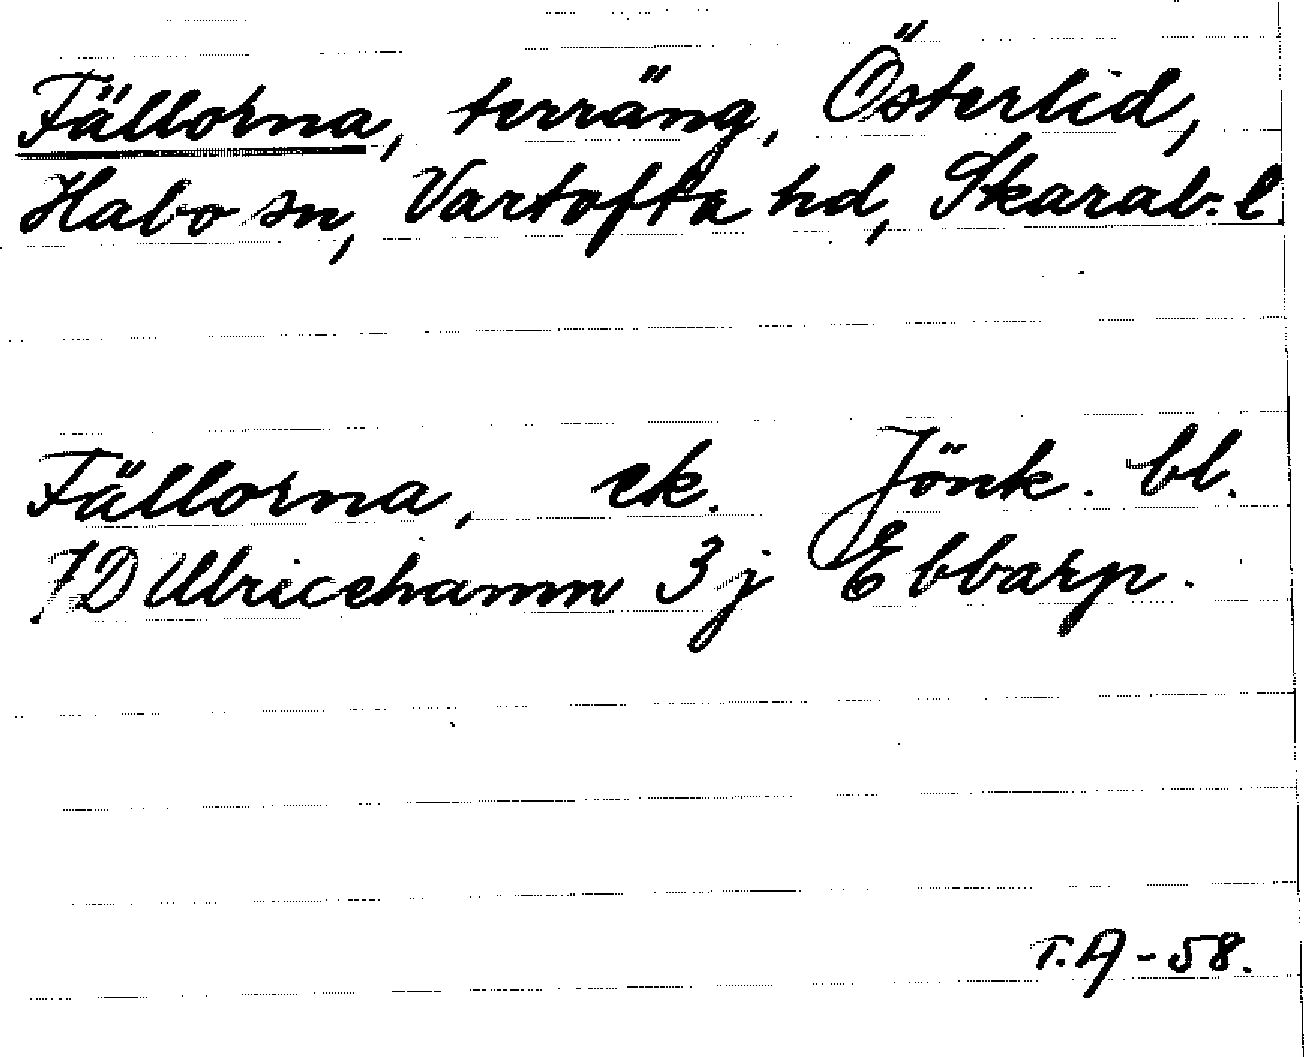 Fällorna, terräng, Österlid,
Habo sn, Vartofta hd, Skarab. l
Fällorna, ek. Jönk. bl.
7D Ulricehamn 3j Ebbarp.
T.A -58.